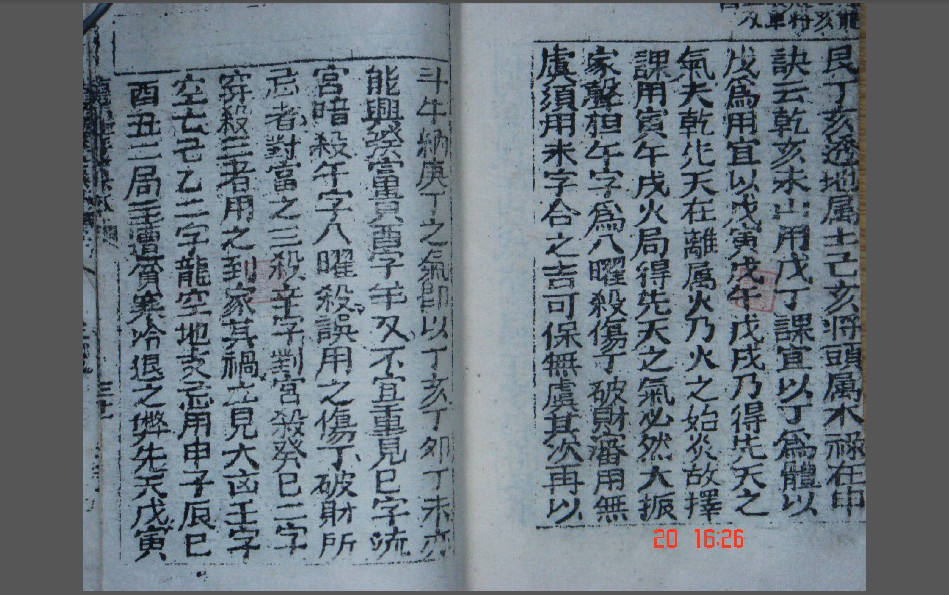 艮丁亥透地属土己亥將頭属木祿在申
訣云乾亥未山用戊丁課宜以丁為體以
戊為用宜以戊寅戊午戊戌乃得先天之
氣夫乾先天在離属火乃火之始炎故擇
課用寅午戌火局得先天之氣必然大振
家聲但午字為八曜殺傷丁破財審用無
虞須用未字合之吉可保無虞其次再以
斗牛納庚丁之氣即以丁亥丁卯丁未亦
能興發富貴酉字羊刃不宜重見巳字流
宮暗殺午字八曜殺誤用之傷丁破財所
忌者對富之三殺辛字對宮殺癸巳二字
穿殺三者用之到家其禍立見大凶壬字
空亡己乙二字龍空地支忌用申子辰巳
酉丑二局主遭貧寒冷退之弊先天戊寅
20 16:26